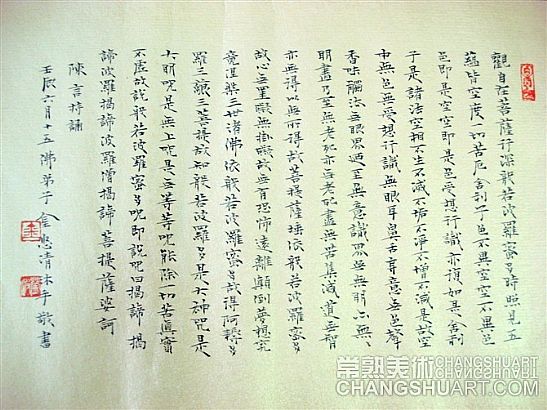 觀自在菩薩行深般若波羅蜜多時照見五
蘊皆空度一切苦厄舍利子色不異空空不異色
色即是空空即是色受想行識亦復如是舍利
子是諸法空相不生不滅不垢不淨不增不減是故空
中無色無受想行識無眼耳鼻舌身意無色聲
香味觸法無眼界乃至無意識界無無明亦無無
明盡乃至無老死亦無老死盡無苦集滅道無智
亦無得以無所得故菩提薩埵依般若波羅蜜多
故心無罣礙無掛礙故無有恐怖遠離顛倒夢想究
竟涅槃三世諸佛依般若波羅蜜多故得阿耨多
羅三藐三菩提故知般若波羅蜜多是大神咒是
大明咒是無上咒是無等等咒能除一切苦真實
不虛故說般若波羅蜜多咒即說咒曰揭諦揭
諦波羅揭諦波羅僧揭諦菩提薩婆訶
陳言持誦
壬辰六月十五佛弟子金忠清沐手敬書
常熟美術CHANGSHUART.COM
CHANGSHUART.COM